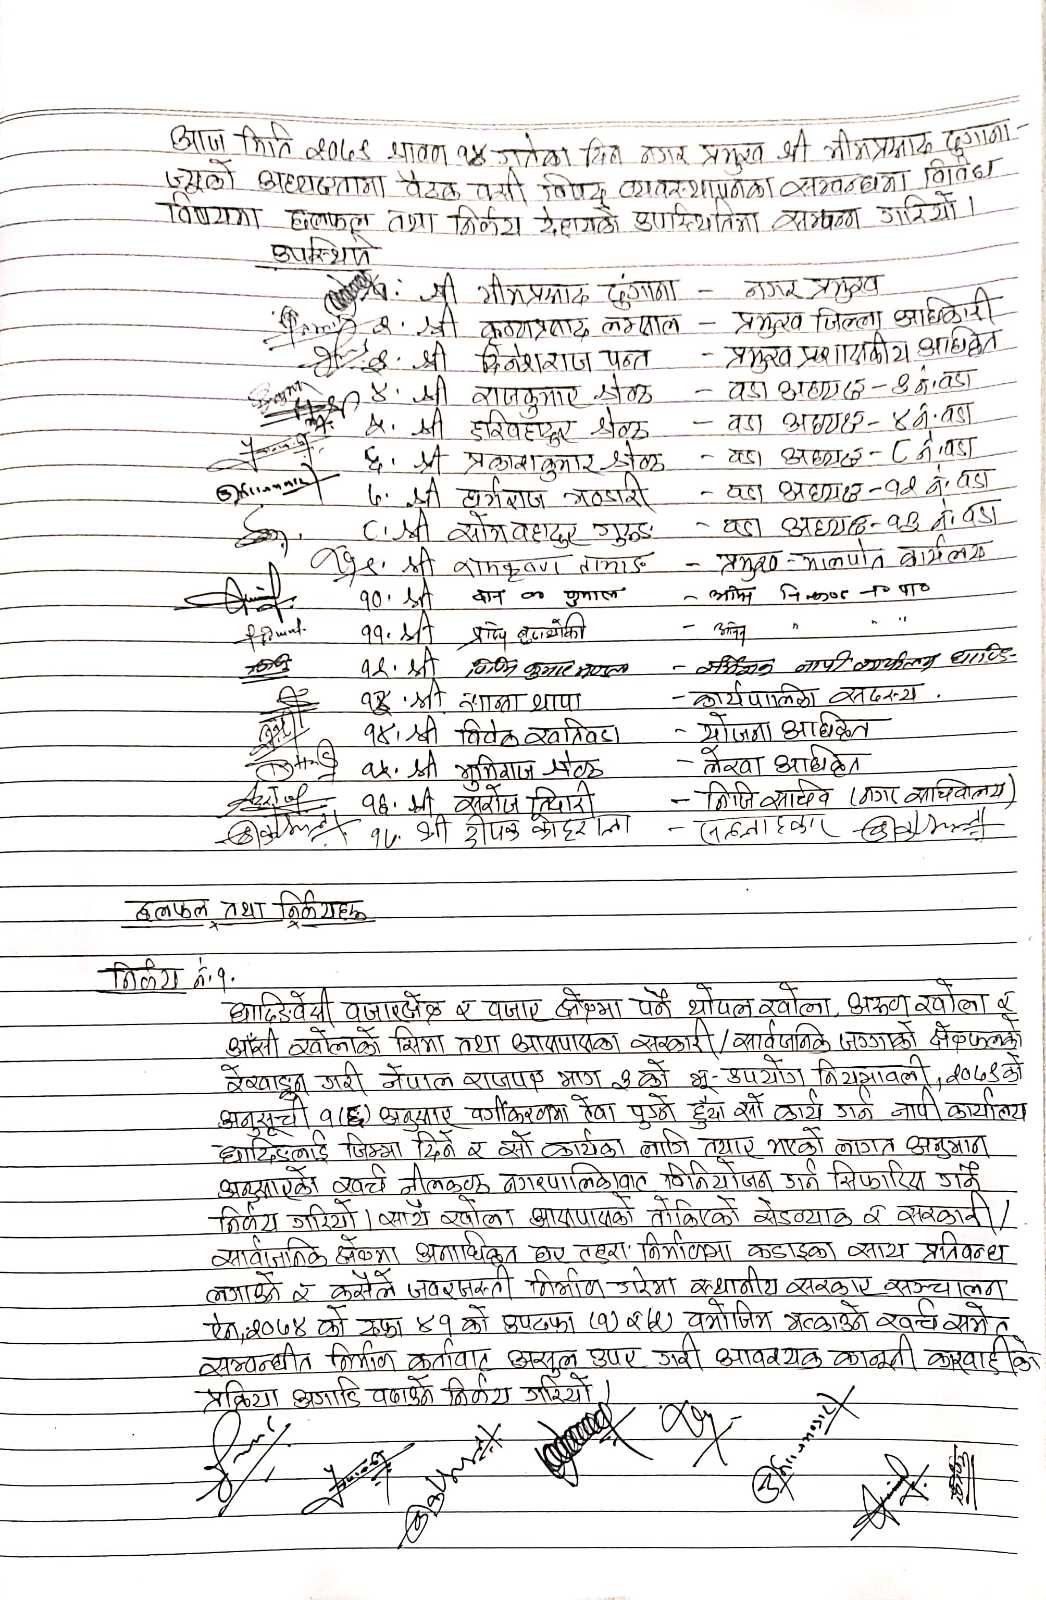 आज मिति २०७९ श्रावण १४ गतेका दिन नगर प्रमुख श्री भीमप्रसाद ढुंगाना-
ज्यूको अध्यक्षतामा बैठक बसी व्यवस्थापनका सम्बन्धमा
विषयमा छलफल तथा निर्णय देहायको उपस्थितिमा सम्पन्न गरियो।
उपस्थिति
१. श्री भीमप्रसाद ढुंगाना - नगर प्रमुख
२. श्री लम्साल - प्रमुख जिल्ला अधिकारी
३. श्री दिनेशराज पन्त - प्रमुख प्रशासकीय अधिकृत
४. श्री राजकुमार श्रेष्ठ - वडा अध्यक्ष - ३ नं. वडा
५. श्री हरिबहादुर श्रेष्ठ - वडा अध्यक्ष - ४ नं. वडा
६. श्री प्रकाशकुमार श्रेष्ठ - वडा अध्यक्ष - ८ नं. वडा
७. श्री भण्डारी - वडा अध्यक्ष - १२ नं. वडा
८. श्री सोमबहादुर गुरुङ - वडा अध्यक्ष - १३ नं. वडा
९. श्री रामकृष्ण तामाङ - प्रमुख - मालपोत कार्यालय
१०. श्री
११. श्री
१२. श्री कुमार - नापी कार्यालय धादिङ-
१३. श्री थापा - कार्यपालिका सदस्य.
१४. श्री विवेक खतिवडा - योजना अधिकृत
१५. श्री श्रेष्ठ - लेखा अधिकृत
१६. श्री सरोज तिवारी - निजि सचिव (नगर सचिवालय)
१७. श्री दीपक कोइराला - सल्लाहकार
छलफल तथा निर्णयहरू
निर्णय नं. १.
धादिङबेसी बजारक्षेत्र र बजार क्षेत्रमा पर्ने थोपल खोला, अरुण खोला र
आँसी खोलाको सिमा तथा आसपासका सरकारी/सार्वजनिक जग्गाको क्षेत्रफलको
रेखाङ्कन गरी नेपाल राजपत्र भाग ३ को भू-उपयोग नियमावली, २०७९ को
अनुसूची १(६) अनुसार वर्गीकरणमा टेवा पुग्ने हुँदा सो कार्य गर्न नापी कार्यालय
धादिङलाई जिम्मा दिने र सो कार्यका लागि तयार भएको लागत अनुमान
अनुसारको खर्च नीलकण्ठ नगरपालिकाबाट विनियोजन गर्न सिफारिस गर्ने
निर्णय गरियो। साथै खोला आसपासको तोकिएको सेडब्याक र सरकारी/
सार्वजनिक क्षेत्रमा अनाधिकृत घर टहरा निर्माणमा कडाइका साथ प्रतिबन्ध
लगाउने र कसैले जबरजस्ती निर्माण गरेमा स्थानीय सरकार सञ्चालन
ऐन, २०७४ को दफा ४१ को उपदफा (१) र (५) बमोजिम भत्काउने खर्च समेत
सम्बन्धीत निर्माण कर्ताबाट असुल उपर गरी आवश्यक कानूनी कारवाहीको
प्रक्रिया अगाडि बढाउने निर्णय गरियो।